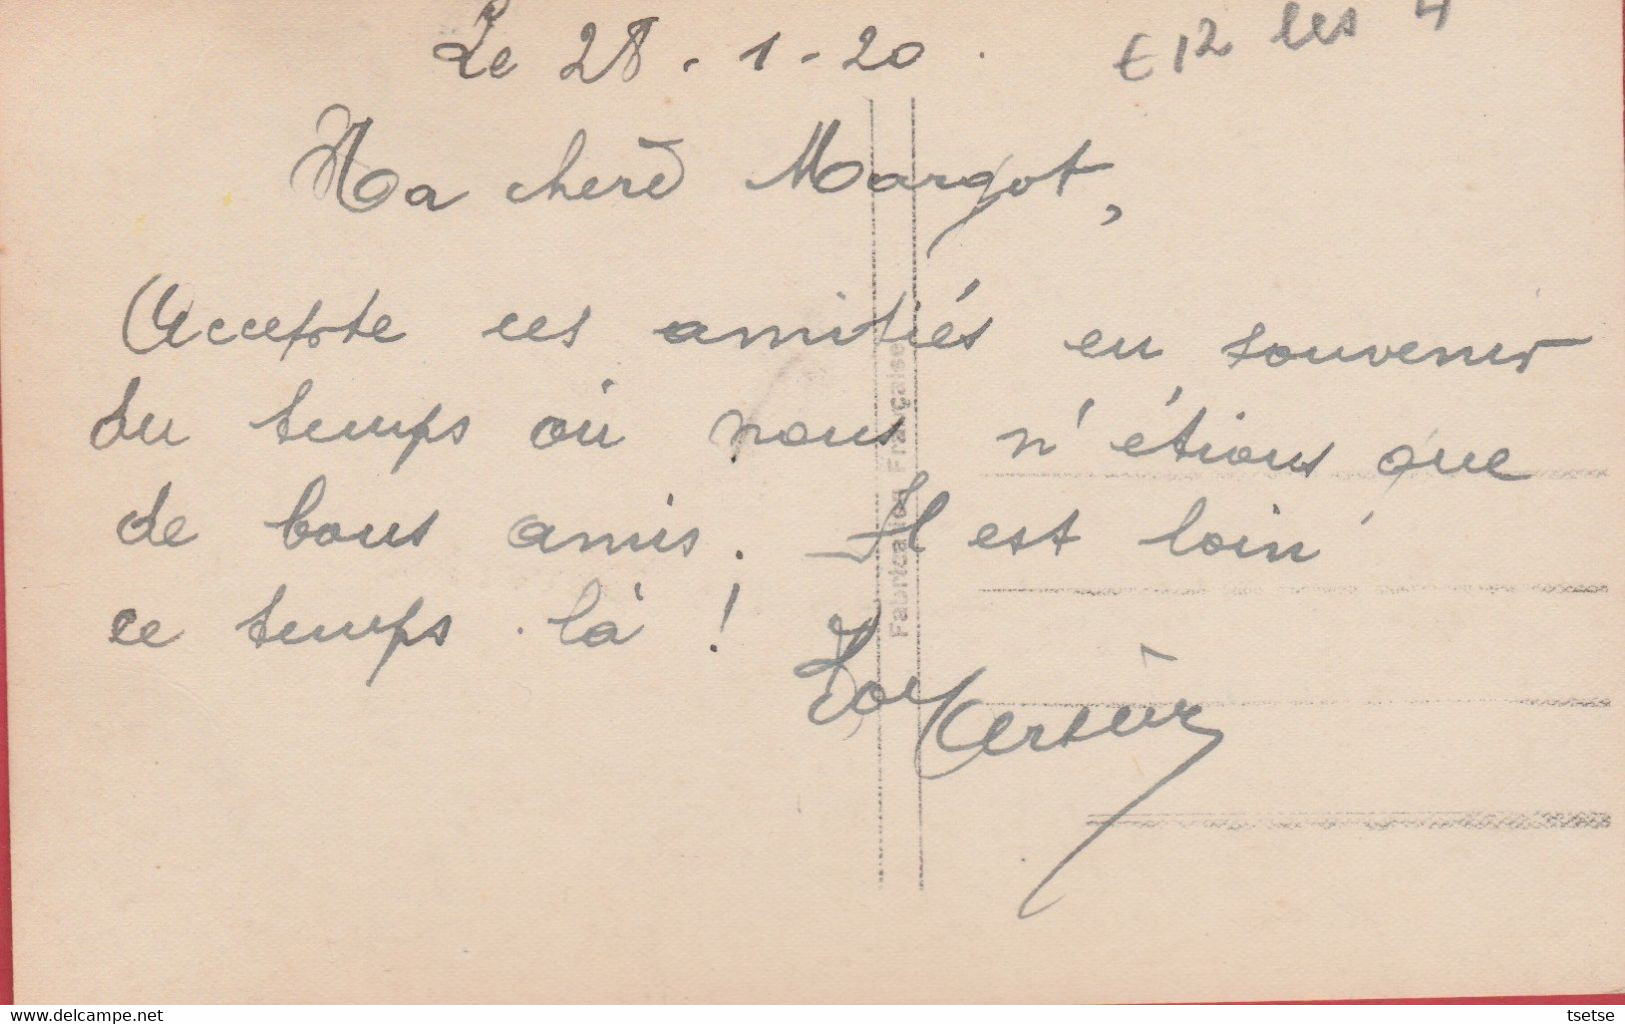 Le 28 - 1 - 20.
€ 12 les 4
Ma chère Margot,
Accepte ces amitiés en souvenir
du temps où nous n'étions que
de bons amis. Il est loin
ce temps-là !
Fabrication Française
www.delcampe.net
tsetse